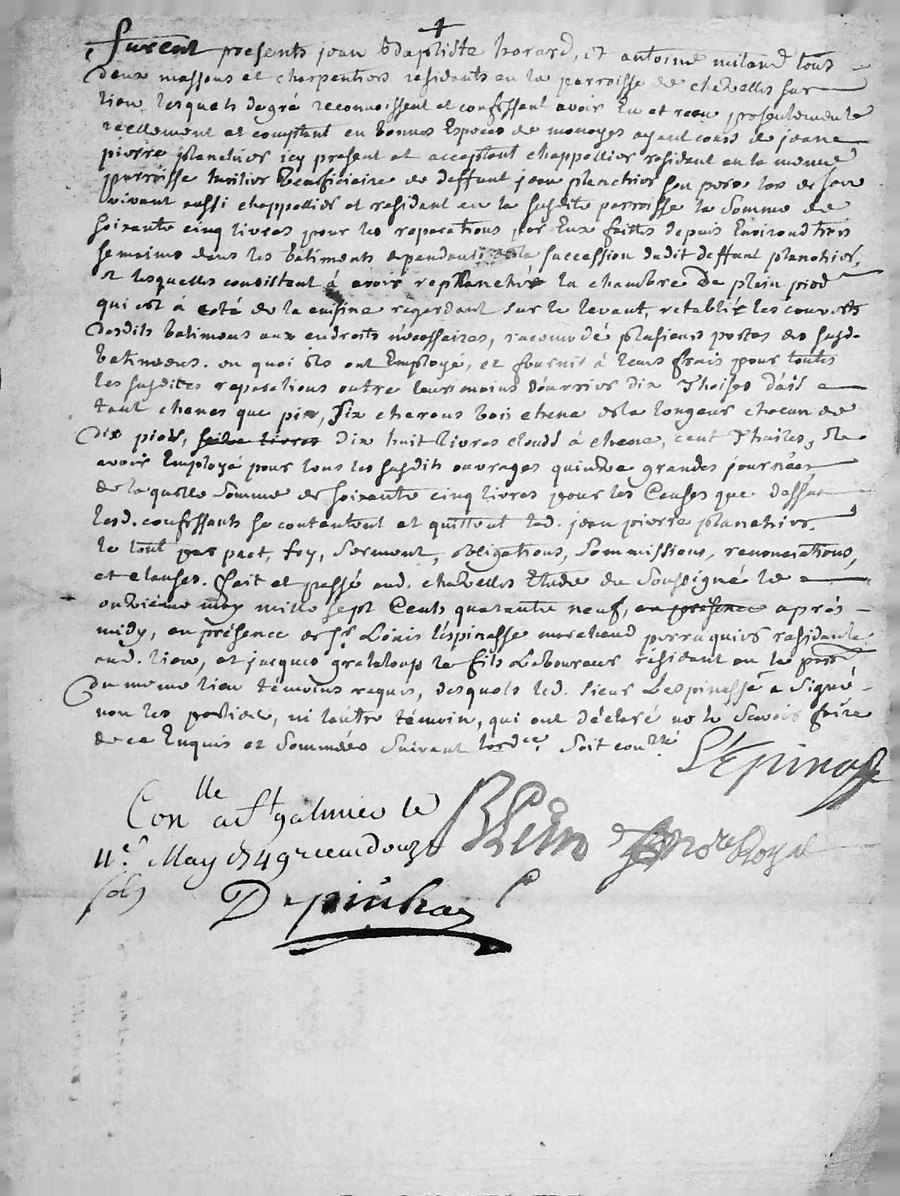 furent presents jean Baptiste horard, et antoine miland tous
deux massons et charpentiers residents en la parroisse de chevelles sur
lieu lesquels de gré reconnoissent et confessent avoir Eu et receu presentement
reellement et comptant en bonnes Especes de monoyes ayant cours de jeane
pierre planchier icy present et acceptant chappellier resident en la meme
parroisse heritier beneficiaire de deffunt jean planchier son pere lors de son
vivant aussi chappellier et resident en la susdite parroisse la Somme de
soixante cinq livres pour les reparations par Eux faittes depuis Environd trois
semaines dans les bâtiments dependants de la succession dudit deffunt planchier,
et lesquelles consistent à avoir replanché la chambre de plein pied
qui est à coté de la cuisine regardant sur le levant, retablit les couverts
desdits batimens aux endroits nécessaires, racomodé plusieurs portes des susd.
batimens. en quoi ils ont Employé, et fournit à leurs frais pour toutes
les susdites reparations outre leurs mains d'ouvrier dix Thoises d'ais
tant chenes que pin, six cherons bois chene de la longeur chacun de
dix pieds, dix huit livres clouds à chene, cent Thuiles, de
avoir Employé pour tous les susdits ouvrages quindze grandes journées
de laquelle somme de soixante cinq livres pour les Causes que dessus
lesd. confessants se contentent et quittent led. jean pierre planchier,
le tout par pact, foy, serment, obligations, soumissions, renonciations,
et clauses. fait et passé aud. chevelles Etude du Soussigné le
ondzieme may mille sept Cents quarante neuf, en presence après
midy, en présence de sr. Léonis l'éspinasse marchand perruquier residante
aud. lieu, et jacques grataloup le fils Laboureur résident en la parr
du meme lieu témoins requis, desquels led. sieur Lespinasse a signé
non les parties, ni l'autre témoin, qui ont déclaré ne le Savoir faire
de ce Enquis et Sommées Suivant lordce. Soit conrlé
L'Epinasse
Conlle a St galmier le
11e. May 1749 receu douze
sols
notre Royal
Depinhac